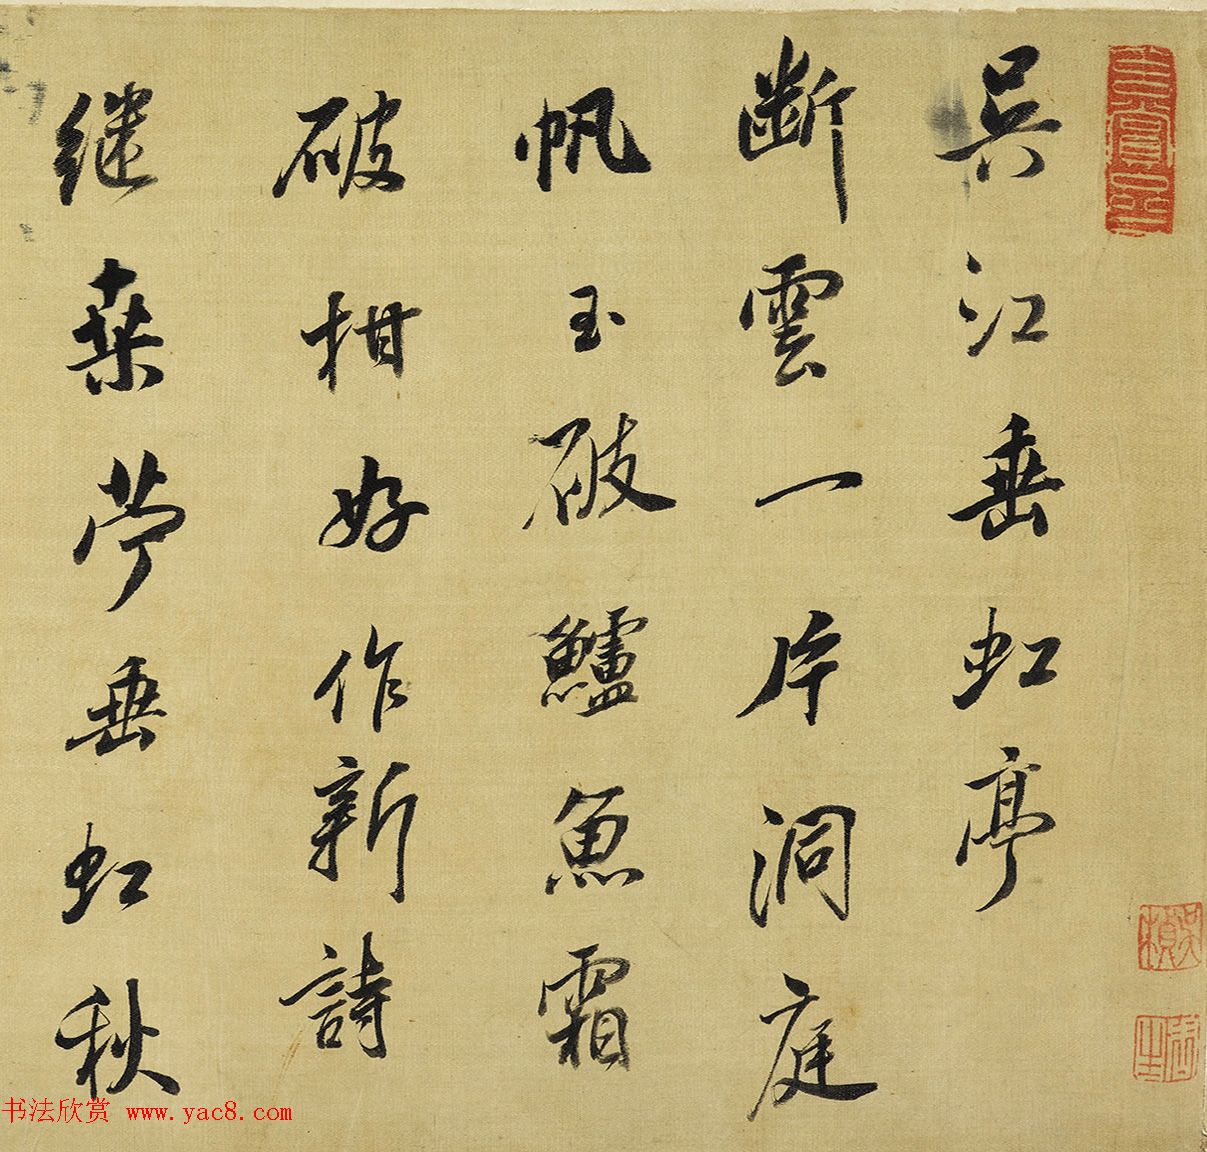 玄賞齋
吳江垂虹亭
斷雲一片洞庭
帆玉破鱸魚霜
破柑好作新詩
继桒苧垂虹秋
吳楨
周生
书法欣赏 www.yac8.com